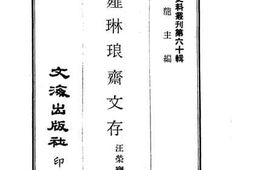 料叢刊第六十輯
龍主編
薤琳琅齋文存
汪榮
文海出版社 印